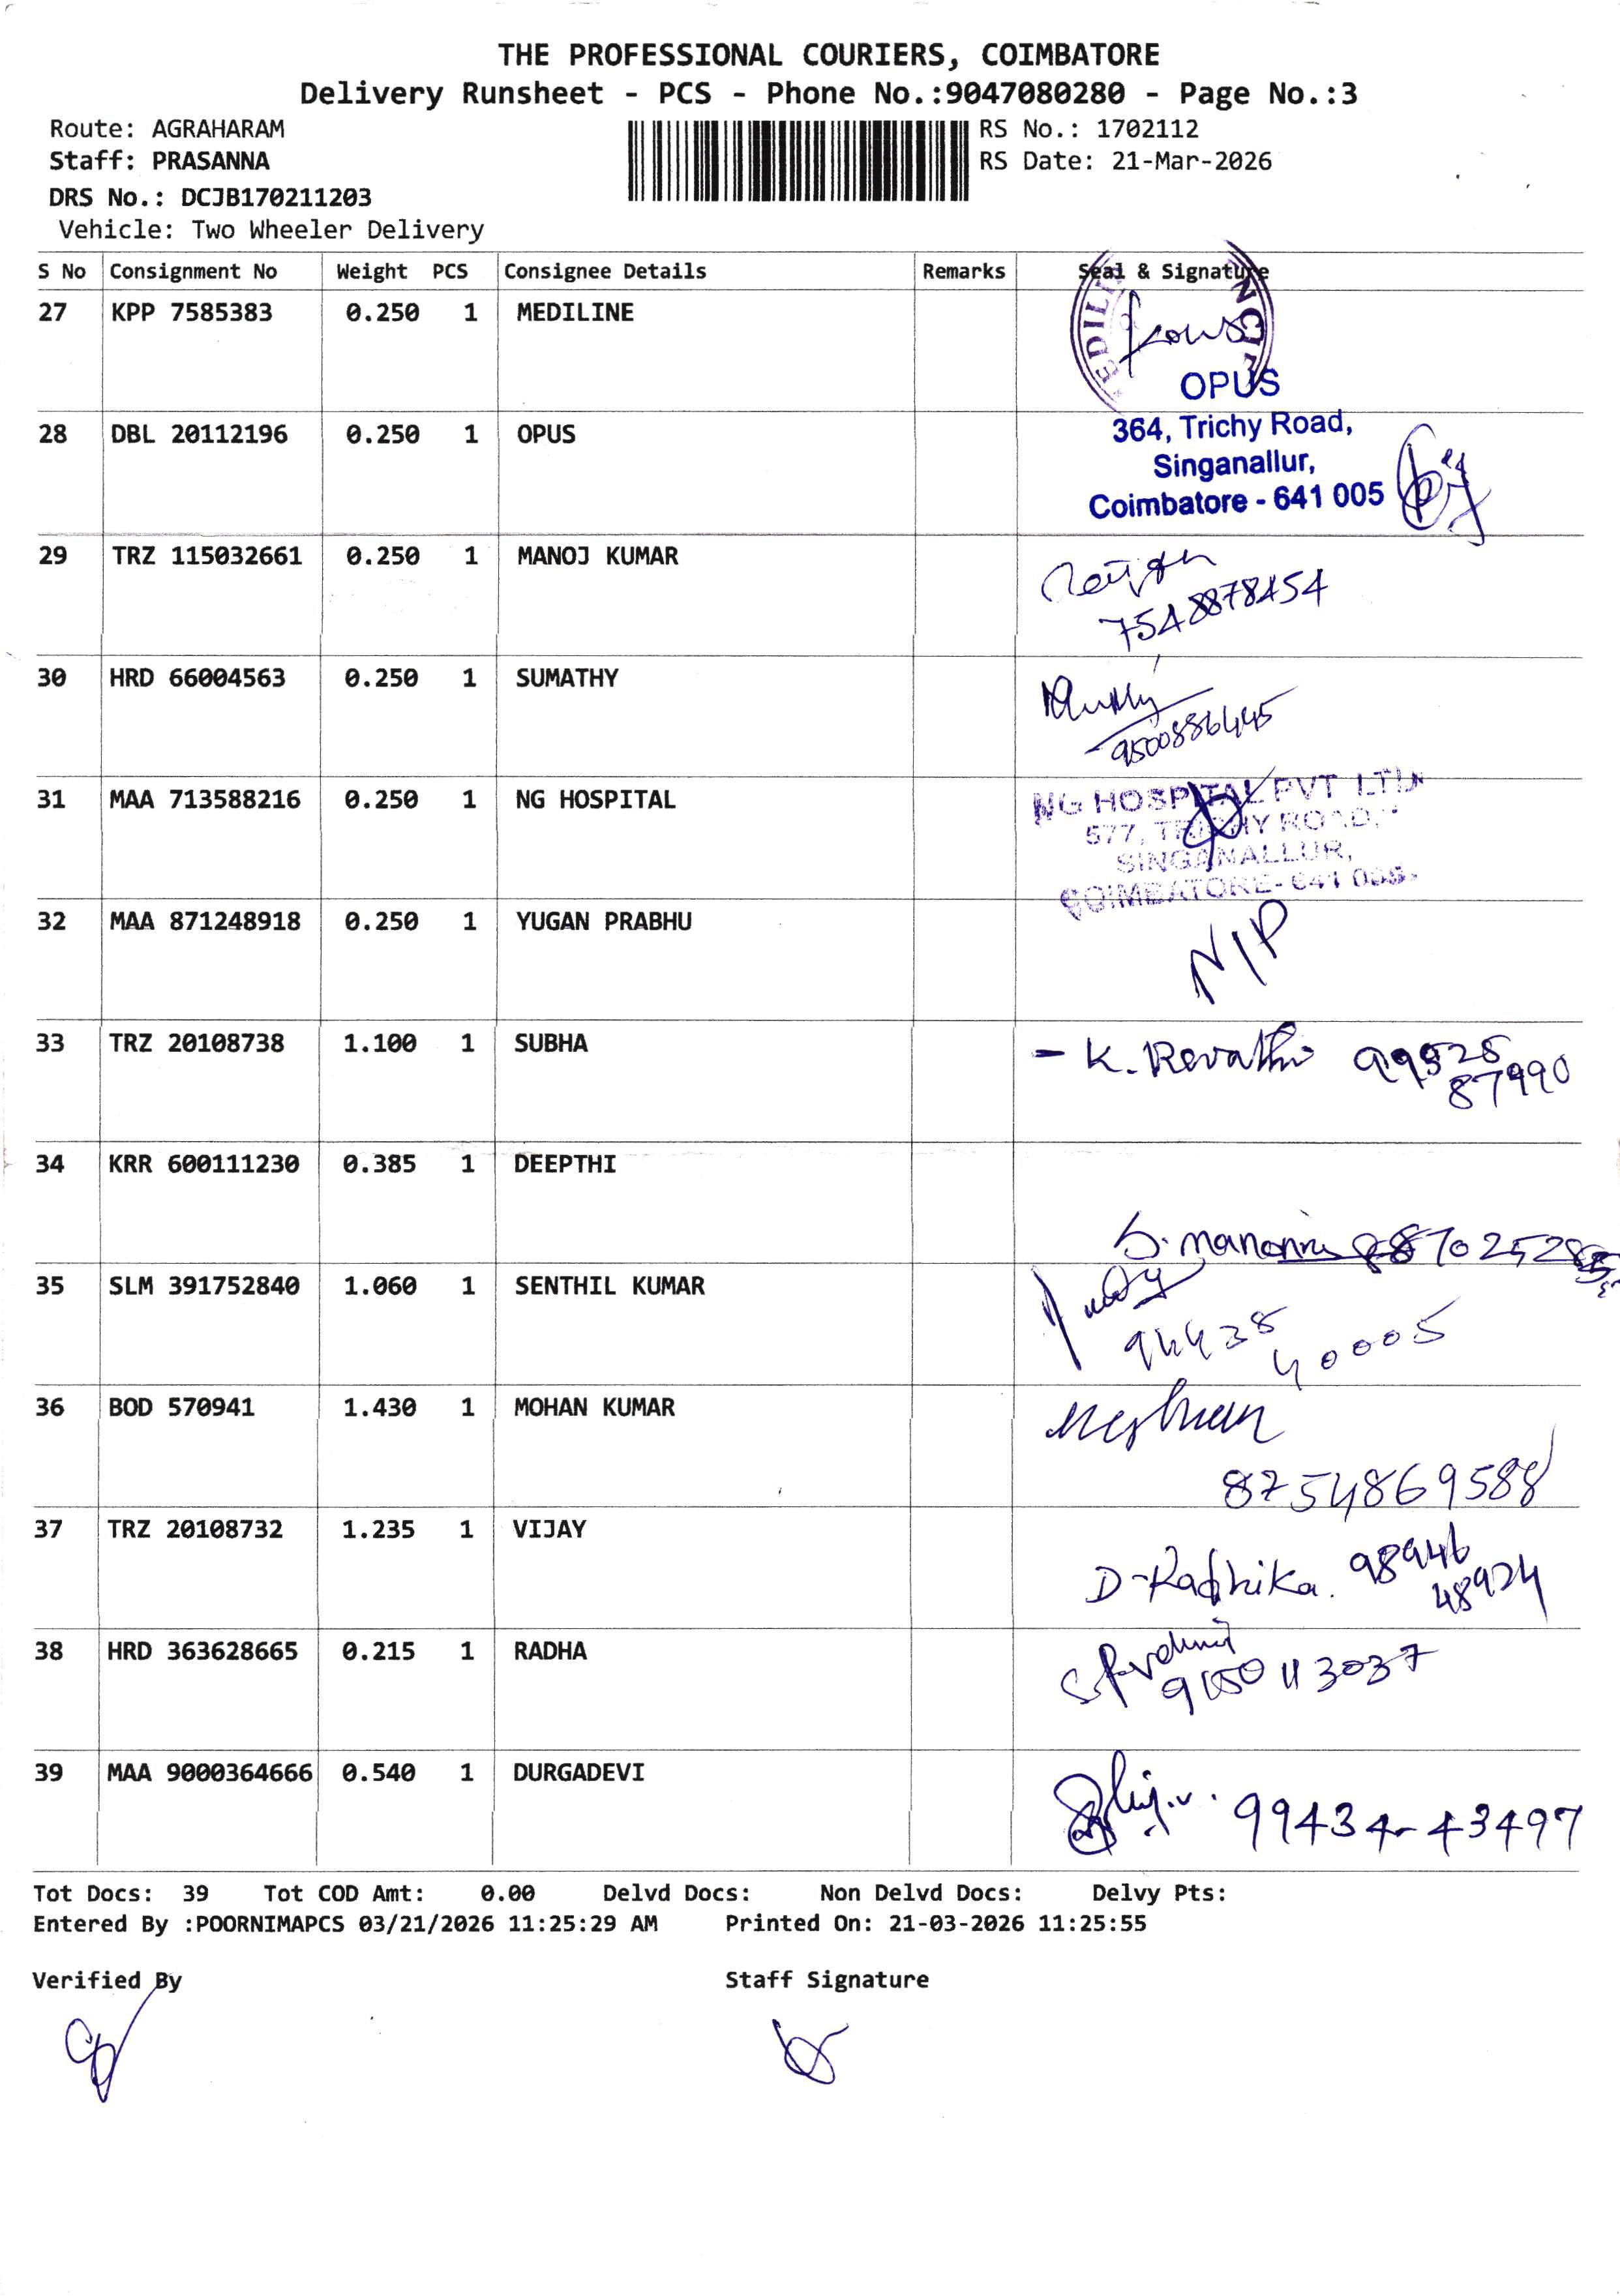 THE PROFESSIONAL COURIERS, COIMBATORE
Delivery Runsheet - PCS - Phone No.:9047080280 - Page No.:3
Route: AGRAHARAM
RS No.: 1702112
Staff: PRASANNA
RS Date: 21-Mar-2026
DRS No.: DCJB170211203
Vehicle: Two Wheeler Delivery
S No Consignment No Weight PCS Consignee Details Remarks Seal & Signature
27 KPP 7585383 0.250 1 MEDILINE
OPUS
28 DBL 20112196 0.250 1 OPUS
364, Trichy Road,
Singanallur,
Coimbatore - 641 005
29 TRZ 115032661 0.250 1 MANOJ KUMAR
30 HRD 66004563 0.250 1 SUMATHY
9500886445
31 MAA 713588216 0.250 1 NG HOSPITAL
NG HOSPITAL PVT LTD
577, TRICHY ROAD,
SINGANALLUR,
COIMBATORE- 641 005.
32 MAA 871248918 0.250 1 YUGAN PRABHU
N/P
33 TRZ 20108738 1.100 1 SUBHA
- K. Revathi 99525
87990
34 KRR 600111230 0.385 1 DEEPTHI
35 SLM 391752840 1.060 1 SENTHIL KUMAR
94438
40005
36 BOD 570941 1.430 1 MOHAN KUMAR
8754869588
37 TRZ 20108732 1.235 1 VIJAY
D-Radhika. 98946
48924
38 HRD 363628665 0.215 1 RADHA
9150113037
39 MAA 9000364666 0.540 1 DURGADEVI
99434-43497
Tot Docs: 39 Tot COD Amt: 0.00 Delvd Docs: Non Delvd Docs: Delvy Pts:
Entered By :POORNIMAPCS 03/21/2026 11:25:29 AM Printed On: 21-03-2026 11:25:55
Verified By Staff Signature